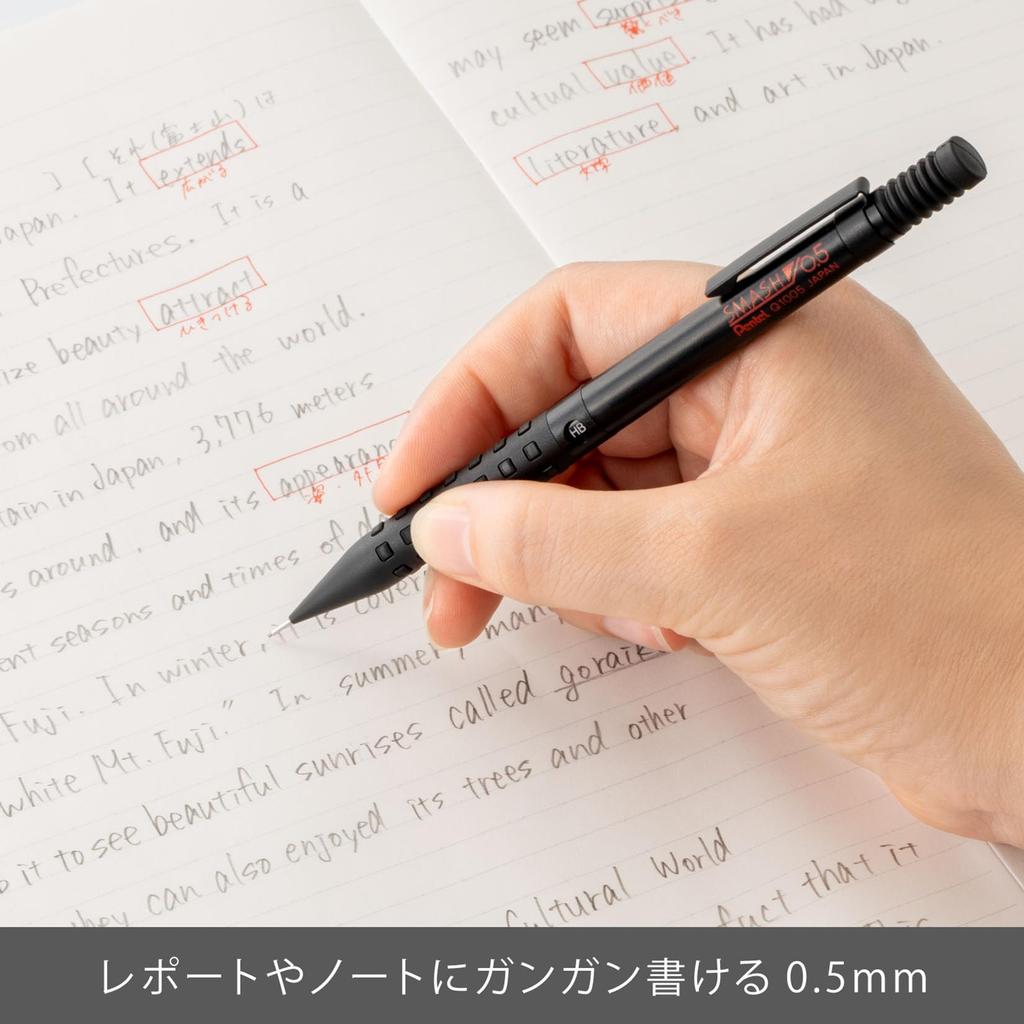 ] [ それ(富士山)は
apan. It extends
広がる
Prefectures. It is a
ize beauty attract
ひきつける
om all around the world.
tain in Japan, 3,776 meters
s around, and its appearan
姿・外
ent seasons and times of
Fuji. In winter, it is cover
white Mt. Fuji." In summer, man
it to see beautiful sunrises called gorai
they can also enjoyed its trees and other
Cultural World
fact that it
may seem surpris
cultual value. It has had
価値
literature, and art in Japan.
文学
SMASH 0.5
Pentel Q1005 JAPAN
HB
レポートやノートにガンガン書ける 0.5mm